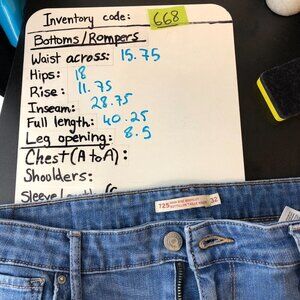 Inventory code: 668
Bottoms/Rompers
Waist across: 15.75
Hips: 18
Rise: 11.75
Inseam: 28.75
Full length: 40.25
Leg opening: 8.5
Chest (A to A):
Shoulders:
725 32